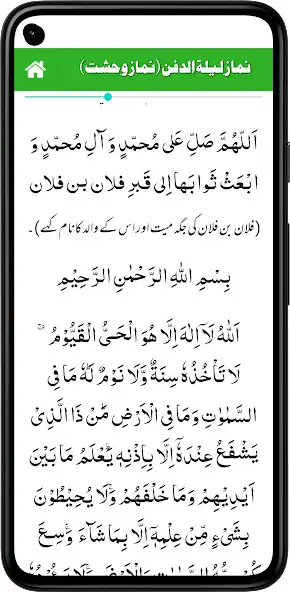 نماز لیلۃ الدفن (نماز وحشت)
اَللّٰهُمَّ صَلِّ عَلٰى مُحَمَّدٍ وَ آلِ مُحَمَّدٍ وَ
ابْعَثْ ثَوَابَهَا اِلٰى قَبْرِ فلان بن فلان
(فلان بن فلان کی جگہ میت اور اس کے والد کا نام کہے)۔
بِسْمِ اللهِ الرَّحْمٰنِ الرَّحِيْمِ
اَللهُ لَاۤ اِلٰهَ اِلَّا هُوَ الْحَىُّ الْقَيُّوْمُ
لَا تَاْخُذُهٗ سِنَةٌ وَّلَا نَوْمٌ لَهٗ مَا فِى
السَّمٰوٰتِ وَمَا فِى الْاَرْضِ مَنْ ذَا الَّذِىْ
يَشْفَعُ عِنْدَهٗۤ اِلَّا بِاِذْنِهٖ يَعْلَمُ مَا بَيْنَ
اَيْدِيْهِمْ وَمَا خَلْفَهُمْ وَلَا يُحِيْطُوْنَ
بِشَىْءٍ مِّنْ عِلْمِهٖۤ اِلَّا بِمَا شَآءَ وَسِعَ